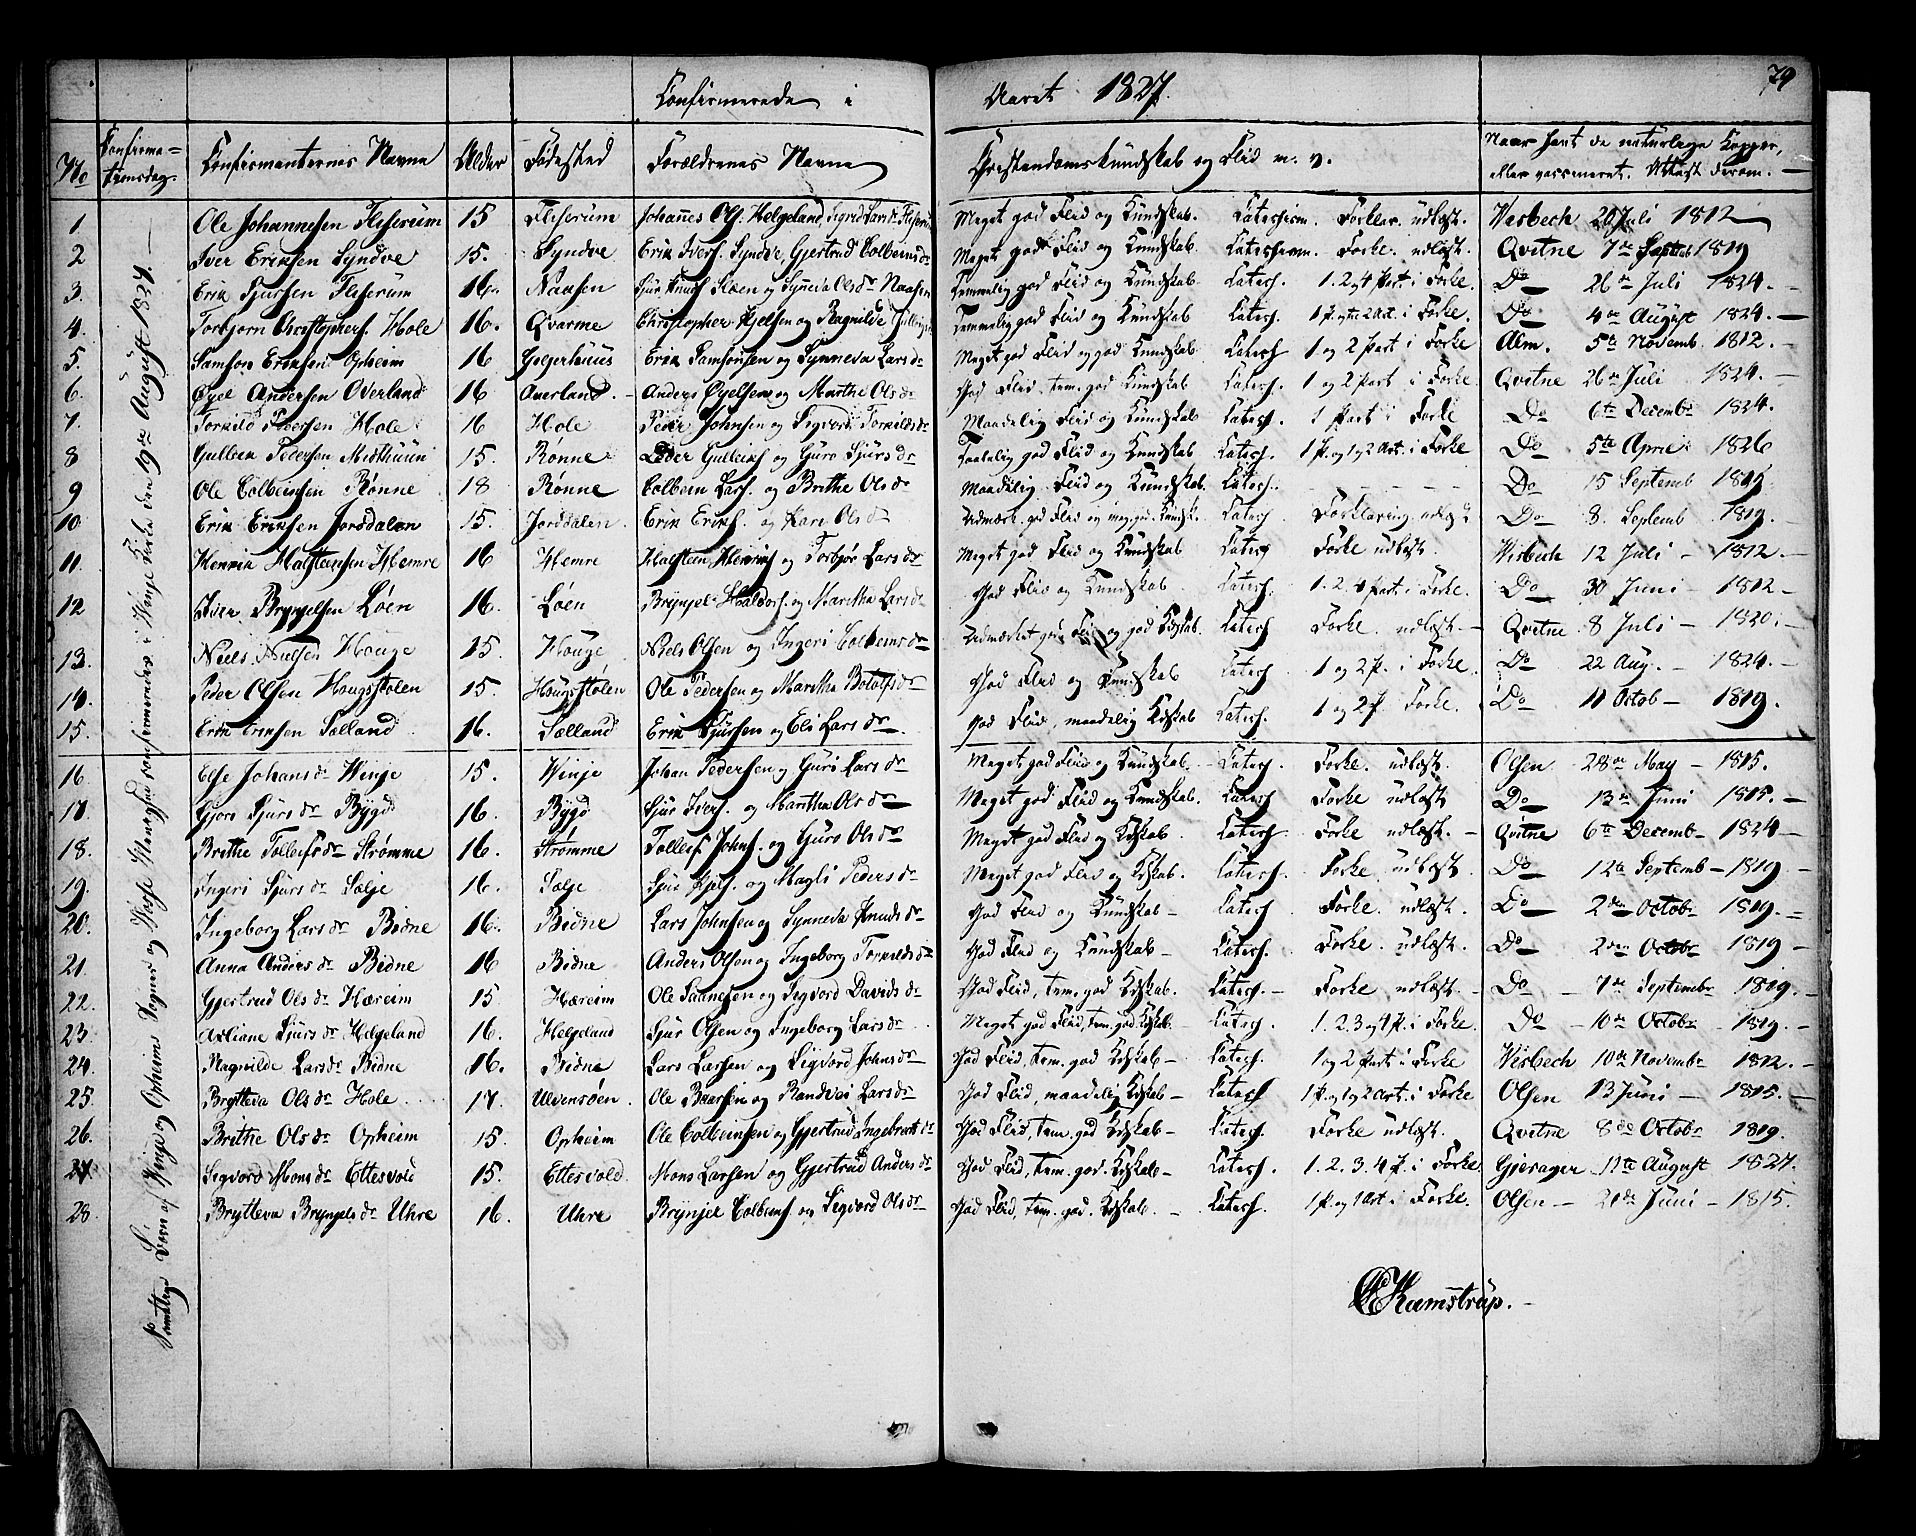 Confirmerede i Aaret 1827. 79
No Confirmationsdag. Confirmanternes Navne Alder Fødested Forældrenes Navne Christendomskundskab og Flid m. v. Naar havt de naturlige Kopper, eller vaccineret. Attest derom.
Samtlige Børn af Winje og Opheims Sogner og Vosse Menighed confirmerede i Winje Kirke den 19de August 1827.
1 Ole Johannesen Flisерum 15 Fliserum Johannes Ols. Helgeland, Sigrid Larsdr Meget god Flid og Kundskab. Catechism. Forklar. udlæst. Wisbech 20 Juli 1812
2 Iver Eriksen Syndve 15. Syndve Erik Ivers. Syndve, Gjertrud Colbeinsdr Meget god Flid og Kundskab Catechism. Forkl. udlæst. Qvitne 7de Septemb 1819
3. Erik Sjursen Fliserum 16. Naasen Sjur Knuds. Sloen og Synneva Olsdr Naasen Temmelig god Flid og Kundskab Catech. 1. 2. 4 Part. i Forkl. Do 26de Juli 1824.
4. Torbjørn Christophers. Hole 16. Qvarme Christopher Kjelsen og Ragnilde Temmelig god Flid og Kundskab Catech. i Forkl. Do 4de August 1824.
5. Samson Eriksen Opheim 16 Erik Samsonsen og Synneva Larsdr Meget god Flid og god Kundskab Catech 1 og 2 Part i Forkl Alm. 5te Novemb. 1812.
6. Øyel Andersen Overland 16 Averland Anders Øyelsen og Marthe Olsdr God Flid, tem. god Kundskab Catech. 1 og 2 Part. i Forkl. Qvitne 26de Juli 1824.
7. Torkild Pedersen Hole 16 Hole Peder Johnsen og Sigvord Torkildsdr Maadelig Flid og Kundskab Catech. 1 Part i Forkl Do 6te Decembr 1824.
8 Gulleik Pedersen Midthuun 15. Rønne Peder Gulleiks. og Guro Sjursdr god Flid og Kundskab Catech. 1 P. og 1 og 2 Art. i Forkl Do 5te April 1826
9 Ole Colbeinsen Rønne 18 Rønne Colbein Lars. og Brithe Olsdr Maadelig Flid og Kundskab. Catech. Do 15 Septemb 1819.
10. Erik Eriksen Jordalen 15. Jordalen. Erik Eriks. og Kari Olsdr Udmærk. god Flid og meg. god Kundsk. Catech. Forklaring udlæst Do 8. Septemb 1819.
11. Henrik Halsteensen Hemre 16 Hemre Halsteen Henriks og Torbjør Larsdr Meget god Flid og Kundskab Catech Forkl udlæst. Wisbech 12 Juli 1812.
12 Iver Brynjelsen Løen 16. Løen Brynjel Haldors. og Maritha Larsdr God Flid og Kundskab Catech. 1. 2. 4 Part i Forkl. Do 30 Juni 1812
13. Niels Nielsen Houge 15. Houge Niels Olsen og Ingeri Colbeinsdr Udmærket god Flid og god Kdskab. Catech. Forkl. udlæst. Qvitne 8 Juli 1820.
14. Peder Olsen Hougsstølen 15. Hougstølen Ole Pedersen og Maritha Botolfsdr God Flid og Kundskab Catech. 1 og 2 P. i Forkl. Do 22 Aug. 1824.
15. Erik Eriksen Sælland 16. Sælland Erik Sjursen og Eli Larsdr. God Flid, maadelig Kdskab Catech. 1 og 2 P. Forkl. Do 11 Octob 1819.
16 Else Johansdr Winje 15. Winje Johan Pedersen og Guri Larsdr Meget god Flid og Kundskab. Catech. Forkl. udlæst. Olsen 28de May 1815.
17. Gjøri Sjursdr Bygd 16. Bygd Sjur Ivers. og Maritha Olsdr Meget god Flid og Kundskab. Catech Forkl udlæst Do 13de Juni 1815.
18. Brithe Tolleifsdr Strømme 16. Strømme Tolleif Johns. og Guro Olsdr Meget god Flid og Kdskab. Catech Forkl udlæst. Qvitne 6te Decemb 1824
19. Ingeri Sjursdr Sælje 16. Sælje Sjur Kjels. og Magli Pedersdr Meget god Flid og Kdskab. Catech. Forkl. udlæst. Do 12te Septemb 1819
20. Ingeborg Larsdr Bidne 16. Bidne Lars Johnsen og Synneva Knudsdr God Flid og Kundskab Catech Forkl. udlæst. Do 2den Octobr 1819.
21. Anna Andersdr Bidne 16 Bidne Anders Olsen og Ingeborg Torkildsdr God Flid og Kundskab Catech. Forkl. udlæst. Do 2den Octobr 1819
22. Gjertrud Olsdr Hæreim 15 Hæreim Ole Saanesen og Sigvord Davidsdr God Flid, tem. god Kdskab. Catech. Forkl udlæst. Do 7de Septembr 1819.
23. Sjursdr Helgeland 16. Helgeland Sjur Olsen og Ingeborg Larsdr Meget god Flid, tem. god Kdskab. Catech. 1. 2. 3 og 4 P. i Forkl. Do 10de Octobr 1819.
24. Ragnilde Larsdr Bidne 16. Bidne Lars Larsen og Sigvord Johnsdr God Flid, tem. god Kdskab Catech. 1 og 2 Part i Forkl Wisbech 10de Novembr 1812.
25. Brytteva Olsdr Hole 17 Ulvensøen Ole Baarsen og Randvei Larsdr God Flid, maadelig Kdskab Catech. 1 P. og 1 og 2 Art. i Forkl Olsen 13 Juni 1815.
26. Brithe Olsdr Opheim 15. Opheim Ole Colbeinsen og Gjertrud Ingebretsdr God Flid, tem. god Kdskab Catech. Forkl udlæst. Qvitne 8de Octobr 1819.
27. Sigvord Monsdr Ettesvold 15. Ettesvold. Mons Larsen og Gjertrud Andersdr God Flid, tem. god. Kdskab Catech. 1. 2. 3. 4 P. i Forkl. Gjerager 11te August 1827.
28. Brytteva Brynjelsdr Uhre 16. Uhre Brynjel Colbeins. og Sigvord Olsdr God Flid, tem. god. Kdskab. Catech. 1 P. og 1 Art. i Forkl. Olsen 21de Juni 1815.
Kamstrup.